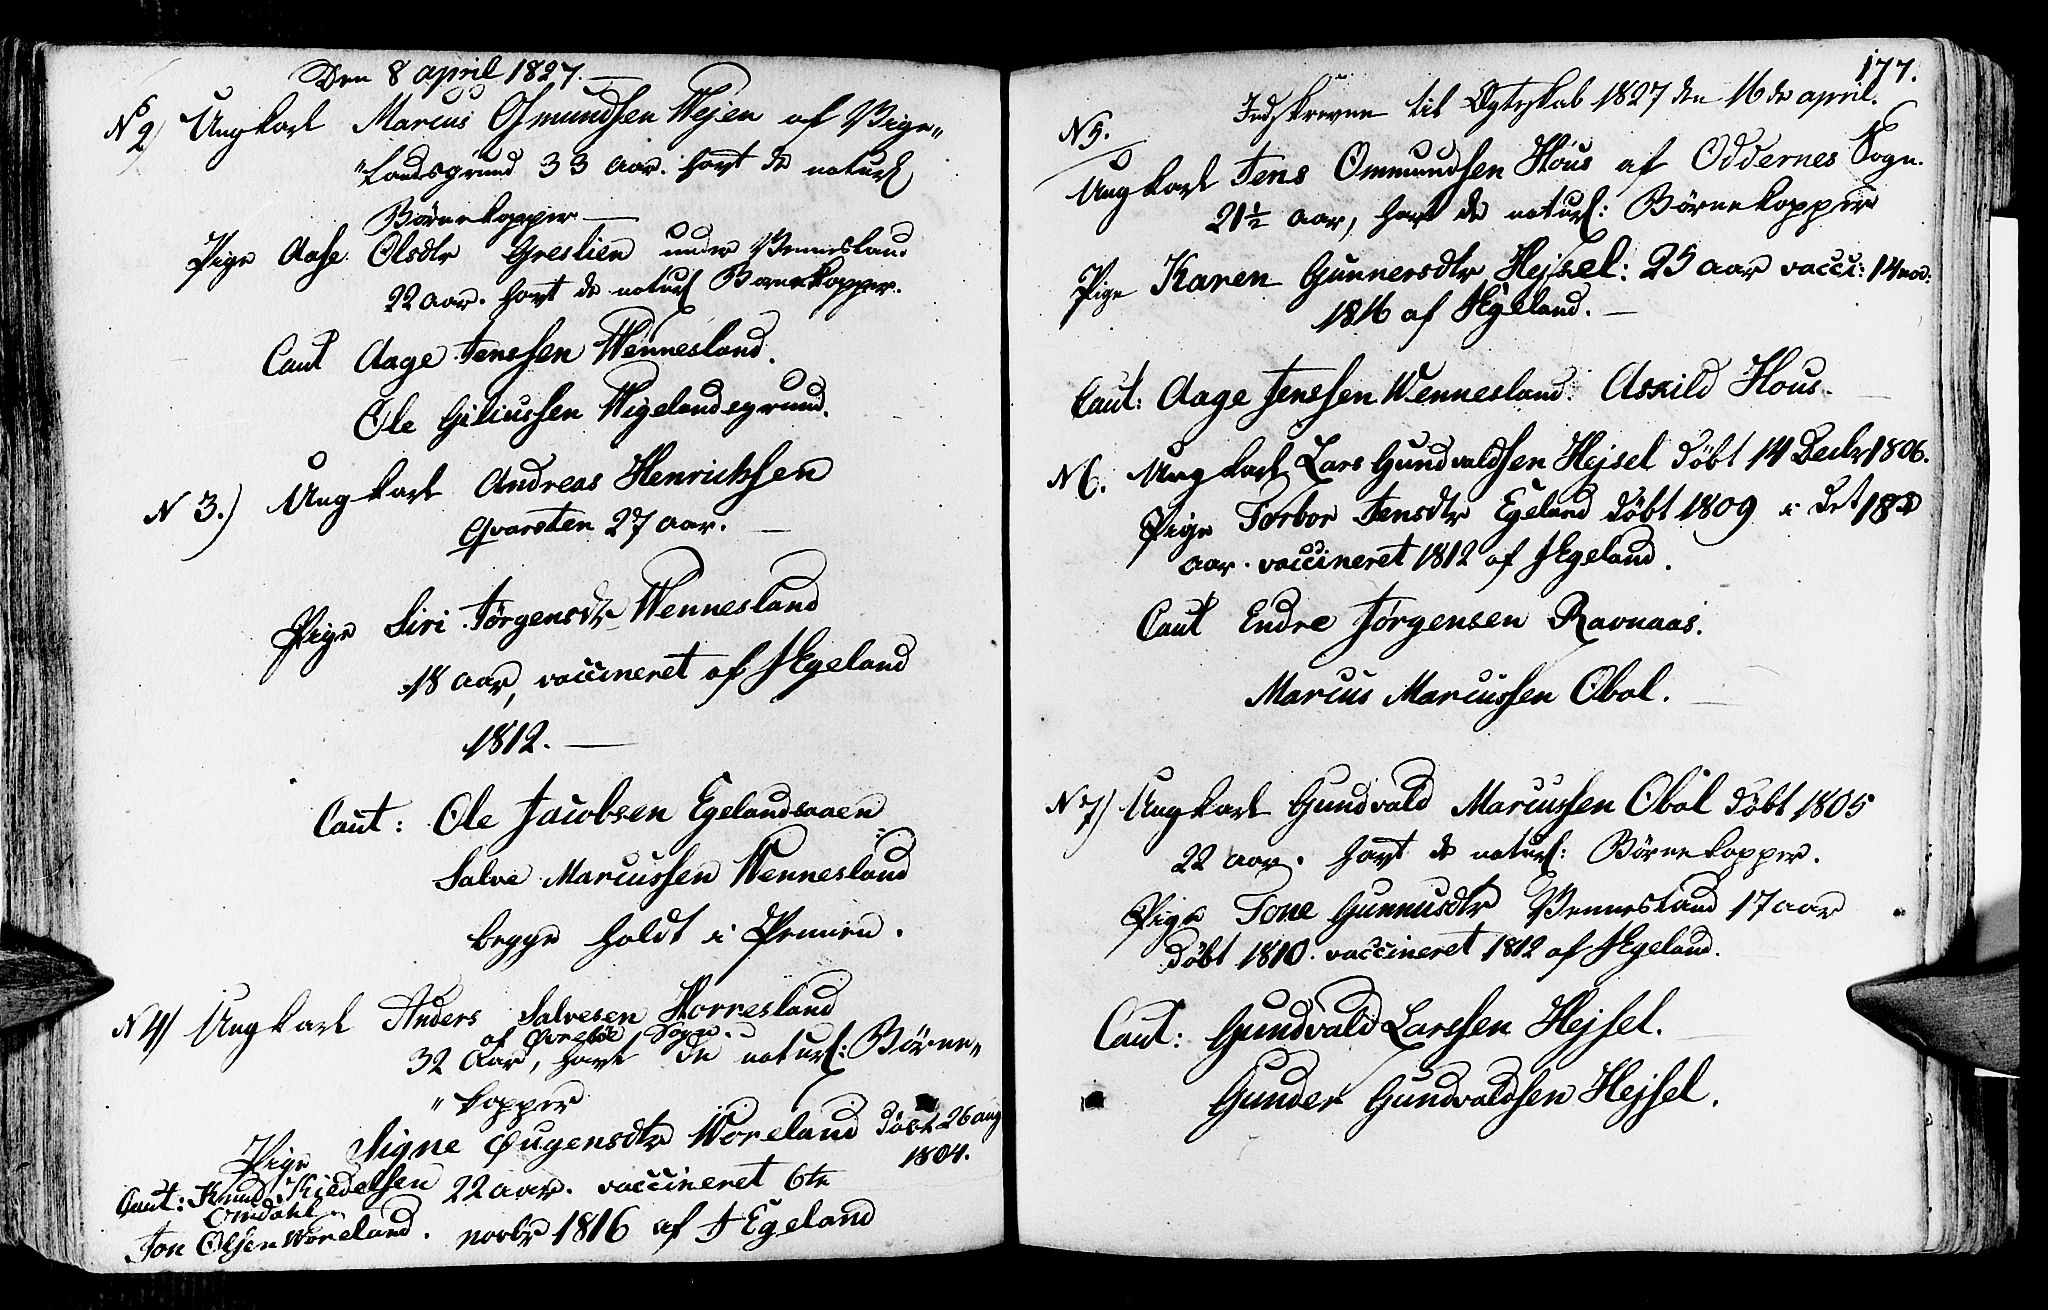 Den 8 april 1827.
N 2) Ungkarl Marcus Osmundsen Wejen af Vige„
„landsgrund 33 aar. havt de naturl
Børnekopper
Pige Aase Olsdtr Greslien under Venneslan
22 aar. havt de naturl Børnekopper.
Caut Aage Jenssen Wennesland.
Ole Giliussen Wigelandsgrund.
N 3.) Ungkarl Andreas Henrichsen
Qvarsten 27 aar.
Pige Siri Jørgensdtr Wennesland
18 aar, vaccineret af J Egeland
1812.
Caut: Ole Jacobsen Egelandsaaen
Salve Marcussen Wennesland
begge holdt i Præmien.
N 4) Ungkarl Anders Salvesen Horresland
af Øvrebøe Sogn.
32 Aar, havt de naturl: Børne„
„kopper
Pige Signe Øugensdtr Woreland døbt 26 aug
1804.
Caut: Knud Kiedelsen 22 aar. vaccineret 6te
Omdahl
Jon Olsen Woreland. novbr 1816 af J Egeland
177.
Indskrevne til Ægteskab 1827 den 16de april.
N 5.
Ungkarl Jens Ommundsen Høus af Oddernes Sogn.
21½ aar, havt de naturl: Børnekopper
Pige Karen Gunnersdtr Hejsel: 25 aar vacci: 14 nov:
1816 af J Egeland.
Caut: Aage Jenssen Wennesland. Askild Hous.
N 6. Ungkarl Lars Gundvaldsen Hejsel døbt 14 Decbr 1806.
Pige Torbor Jensdtr Egeland døbt 1809 i det 18de
aar. vaccineret 1812 af J Egeland.
Caut Endre Jørgensen Ravnaas.
Marcus Marcussen Obol.
N 7) Ungkarl Gundvald Marcussen Obol døbt 1805
22 aar. havt de naturl: Børnekopper.
Pige Tone Gunnusdtr Vennesland 17 aar
døbt 1810. vaccineret 1812 af J Egeland.
Caut: Gundvald Larssen Hejsel.
Gunder Gundvaldsen Hejsel.